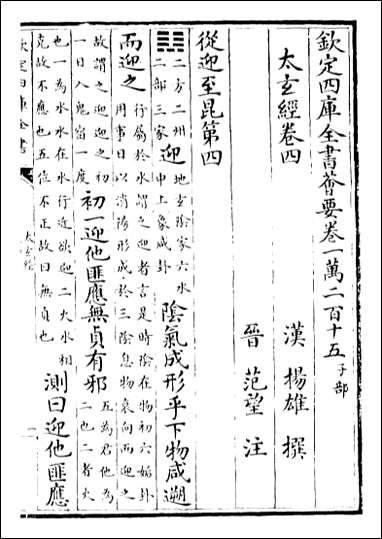 欽定四庫全書薈要卷一萬二百十五子部
太玄經卷四
漢揚雄撰
晉范望注
從迎至昆第四
二方二州
二部三家
迎
地玄陰家六水
中上象咸卦
陰氣成形乎下物咸遡
而迎之
行屬於水謂之迎者言是時陰在物初六姤卦
用事日以消陽形成於三陰息物衰向而迎之
故謂之迎迎之初
一日入鬼宿一度
初一迎他匪應無貞有邪
五為君他為
二也二者火
也一為水水在水行近欲迎二火水相
克故不應也五位不正故曰無貞也
測曰迎他匪應
欽定四庫全書
太玄經
一